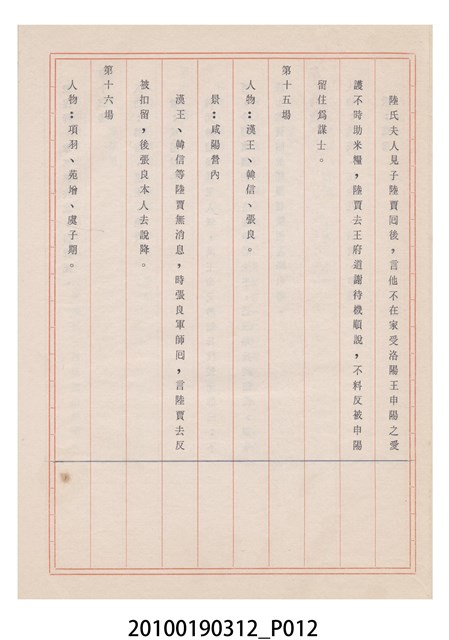 陸氏夫人見子陸賈囘後，言他不在家受洛陽王申陽之愛
護不時助米糧，陸賈去王府道謝待機順說，不料反被申陽
留住爲謀士。
第十五場
人物：漢王、韓信、張良。
景：咸陽營內
漢王、韓信等陸賈無消息，時張良軍師囘，言陸賈去反
被扣留，後張良本人去說降。
第十六場
人物：項羽、范增、虞子期。
20100190312_P012